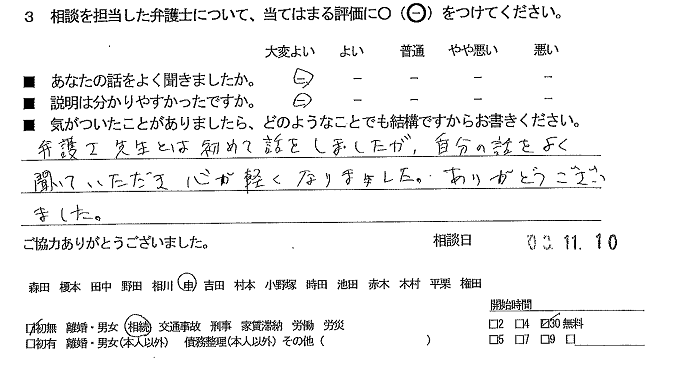 3 相談を担当した弁護士について、当てはまる評価に〇（㊀）をつけてください。
大変よい よい 普通 やや悪い 悪い
■ あなたの話をよく聞きましたか。 － － － － －
■ 説明は分かりやすかったですか。 － － － － －
■ 気がついたことがありましたら、どのようなことでも結構ですからお書きください。
弁護士先生とは初めて話をしましたが、自分の話をよく
聞いていただき心が軽くなりました。ありがとうござい
ました。
ご協力ありがとうございました。 相談日 00.11.10
森田 榎本 田中 野田 相川 申 吉田 村本 小野塚 時田 池田 赤木 木村 平栗 権田
開始時間
☑初無 離婚・男女 相続 交通事故 刑事 家賃滞納 労働 労災 □2 □4 ☑30 無料
□初有 離婚・男女(本人以外) 債務整理(本人以外) その他（ ） □5 □7 □9 □